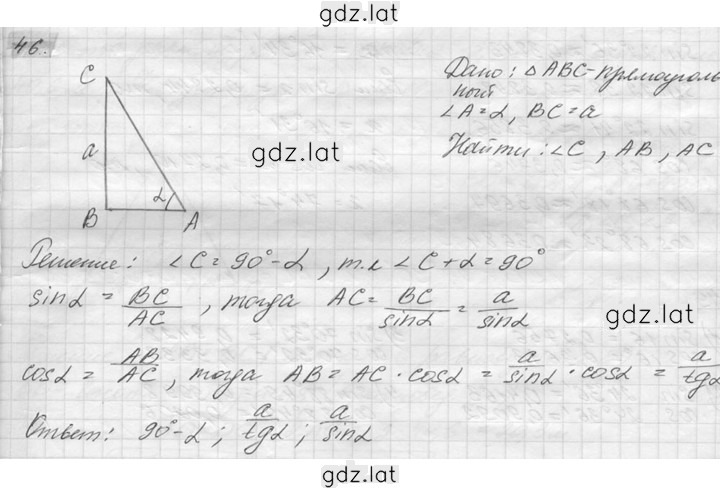 gdz.lat
46.
C
a
α
B
A
Дано: △ABC - прямоуголь
ный
∠A = α, BC = a
Найти: ∠C, AB, AC
gdz.lat
Решение: ∠C = 90° - α, т.к ∠C + α = 90°
sinα = BC/AC, тогда AC = BC/sinα = a/sinα
gdz.lat
cosα = AB/AC, тогда AB = AC · cosα = a/sinα · cosα = a/tgα
Ответ: 90° - α; a/tgα; a/sinα
gdz.lat